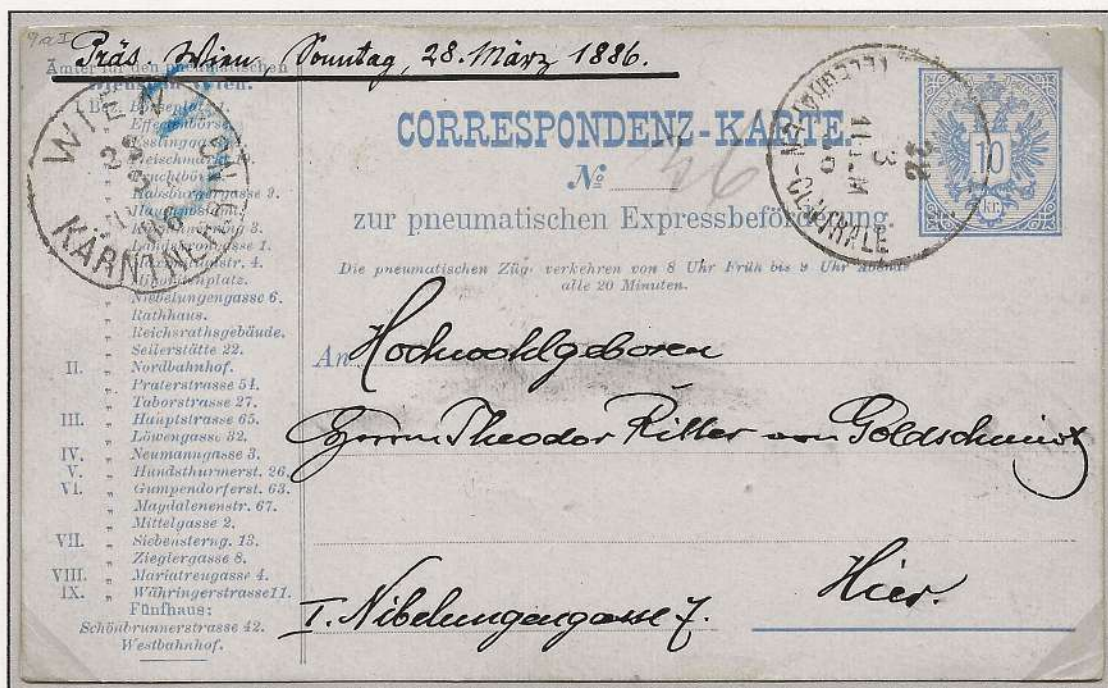 9aI
Präs. Wien, Sonntag, 28. März 1886.
Ämter für den pneumatischen
Wien.
I. Bez. Börseplatz 1.
Effectenbörse.
Esslingg
Fleischmarkt
Fruchtbörse
Habsburgergasse 9.
Hauptzollamt.
3.
Landskrongasse 1.
Maximilianstr. 4.
Minoritenplatz.
Niebelungengasse 6.
Rathhaus.
Reichsrathsgebäude.
Seilerstätte 22.
II. Nordbahnhof.
" Praterstrasse 54.
" Taborstrasse 27.
III. " Hauptstrasse 65.
" Löwengasse 32.
IV. " Neumanngasse 3.
V. " Hundsthurmerst. 26.
VI. " Gumpendorferst. 63.
" Magdalenenstr. 67.
" Mittelgasse 2.
VII. " Siebensterng. 13.
" Zieglergasse 8.
VIII. " Mariatreugasse 4.
IX. " Währingerstrasse 11.
Fünfhaus:
Schönbrunnerstrasse 42.
Westbahnhof.
WIEN
KÄRNTNERRING
CORRESPONDENZ-KARTE.
No. 36
zur pneumatischen Expressbeförderung.
Die pneumatischen Züge verkehren von 8 Uhr Früh bis 9 Uhr Abends
alle 20 Minuten.
WIEN-CENTRALE
28
3
11.1-M
10
kr.
An Hochwohlgeboren
Herrn Theodor Ritter von Goldschmidt
Hier.
I. Nibelungengasse 7.